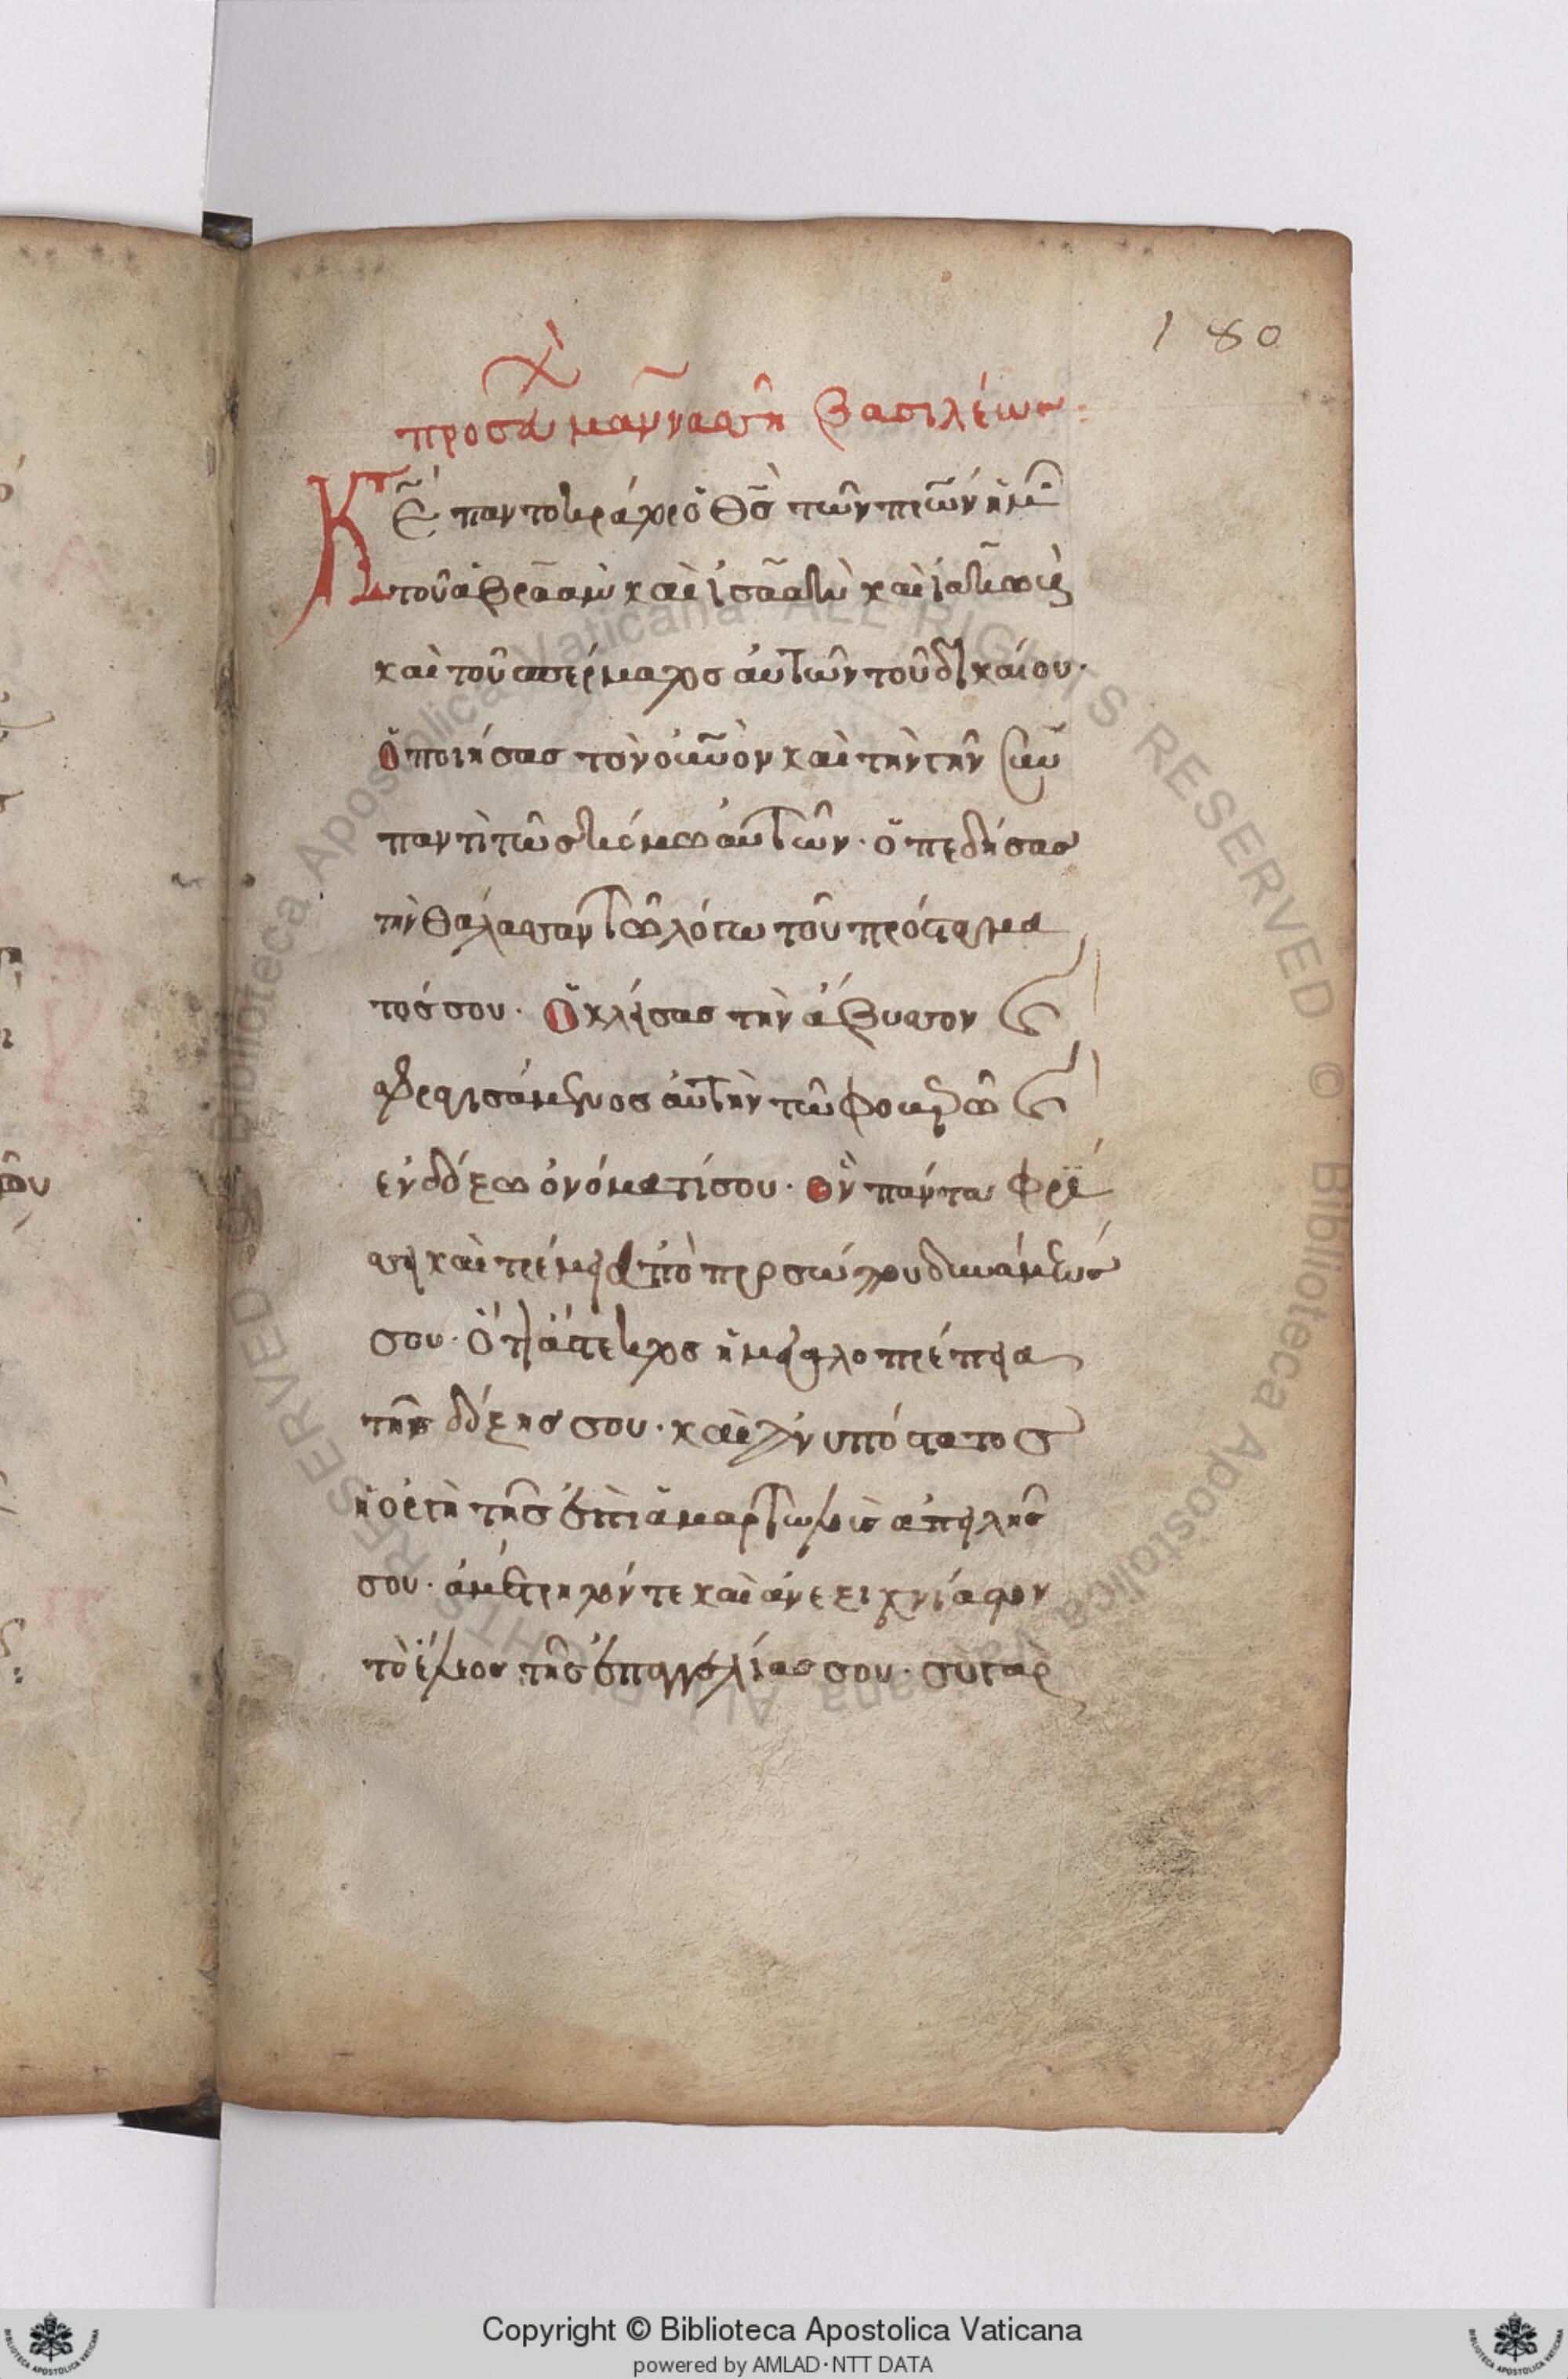 180
προσευχὴ μαννασσῆ βασιλέως:
Κε̄ παντοκράτορ ὁ θς̄ τῶν πρ̄ων ἡμῶν
τοῦ ἀβραὰμ καὶ ἰσαὰκ καὶ ἰακὼβ
καὶ τοῦ σπέρματος αὐτῶν τοῦ δικαίου·
ὁ ποιήσας τὸν οὐν̄ον καὶ τὴν γῆν σὺν
παντὶ τῶ κόσμω αὐτῶν· ὁ πεδήσας
τὴν θάλασσαν τῶ λόγω τοῦ προστάγμα
τός σου· ὁ κλείσας τὴν ἄβυσσον
σφραγισάμενος αὐτὴν τῶ φοβερῶ
ἐνδόξω ὀνόματί σου· ὃν πάντα φρί
σσει καὶ τρέμει ἀπὸ προσώπου δυνάμεώς
σου· ὅτι ἄστεκτος ἡ μεγαλοπρέπεια
τῆς δόξης σου· καὶ ἀνυπόστατος
ἡ ὀργὴ τῆς ἐπὶ ἁμαρτωλοῖς ἀπειλῆς
σου· ἀμέτρητόν τε καὶ ἀνεξιχνίαστον
τὸ ἔλεος τῆς ἐπαγγελίας σου· σὺ γὰρ
Copyright © Biblioteca Apostolica Vaticana
powered by AMLAD·NTT DATA